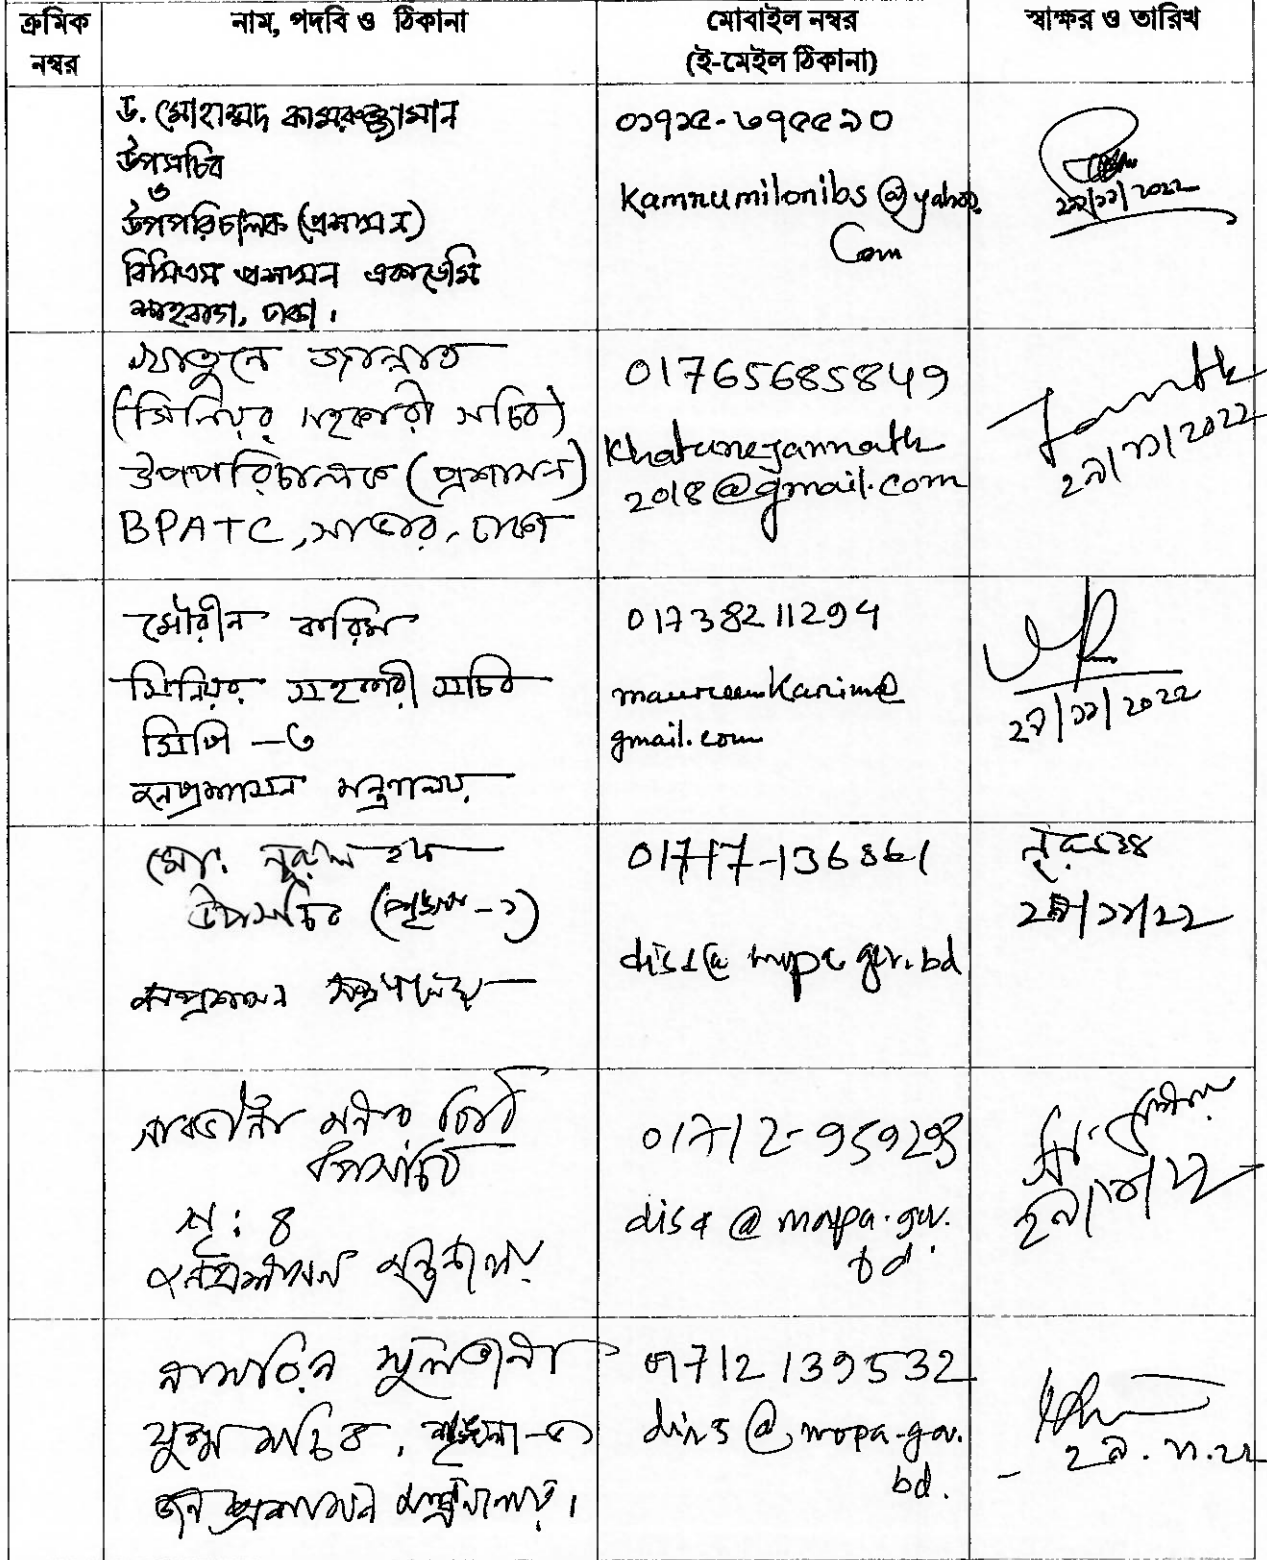 ক্রমিক নম্বর
নাম, পদবি ও ঠিকানা
মোবাইল নম্বর
(ই-মেইল ঠিকানা)
স্বাক্ষর ও তারিখ
ড. মোহাম্মদ কামরুজ্জামান
উপসচিব
ও
উপপরিচালক (প্রশাসন)
বিসিএস প্রশাসন একাডেমি
শাহবাগ, ঢাকা।
০১৭১৫-৬৭৫৫৯০
kamrumilonibs@yahoo.
Com
২৯/১১/২০২২
খাতুনে জান্নাত
(সিনিয়র সহকারী সচিব)
উপপরিচালক (প্রশাসন)
BPATC, সাভার, ঢাকা
01765685849
khatunejannath
2018@gmail.com
Jannath
২৯/১১/২০২২
মৌরীন করিম
সিনিয়র সহকারী সচিব
সিপি -৩
জনপ্রশাসন মন্ত্রণালয়
01738211294
maureenkarim@
gmail.com
২৯/১১/২০২২
মো. নূরুল হক
উপসচিব (শৃঙ্খলা-১)
জনপ্রশাসন মন্ত্রণালয়
01717-136861
dis1@mopa.gov.bd
২৯/১১/২২
উপসচিব
শৃ: ৪
জনপ্রশাসন মন্ত্রণালয়
01712-959293
dis4@mopa.gov.
bd.
নাসরিন সুলতানা
যুগ্মসচিব, শৃঙ্খলা-৫
জনপ্রশাসন মন্ত্রণালয়।
01712139532
dis5@mopa.gov.
bd.
২৯.১১.২২